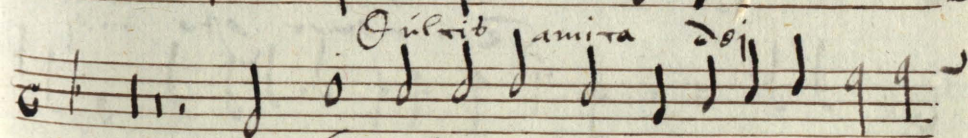 Dulcis amica dei